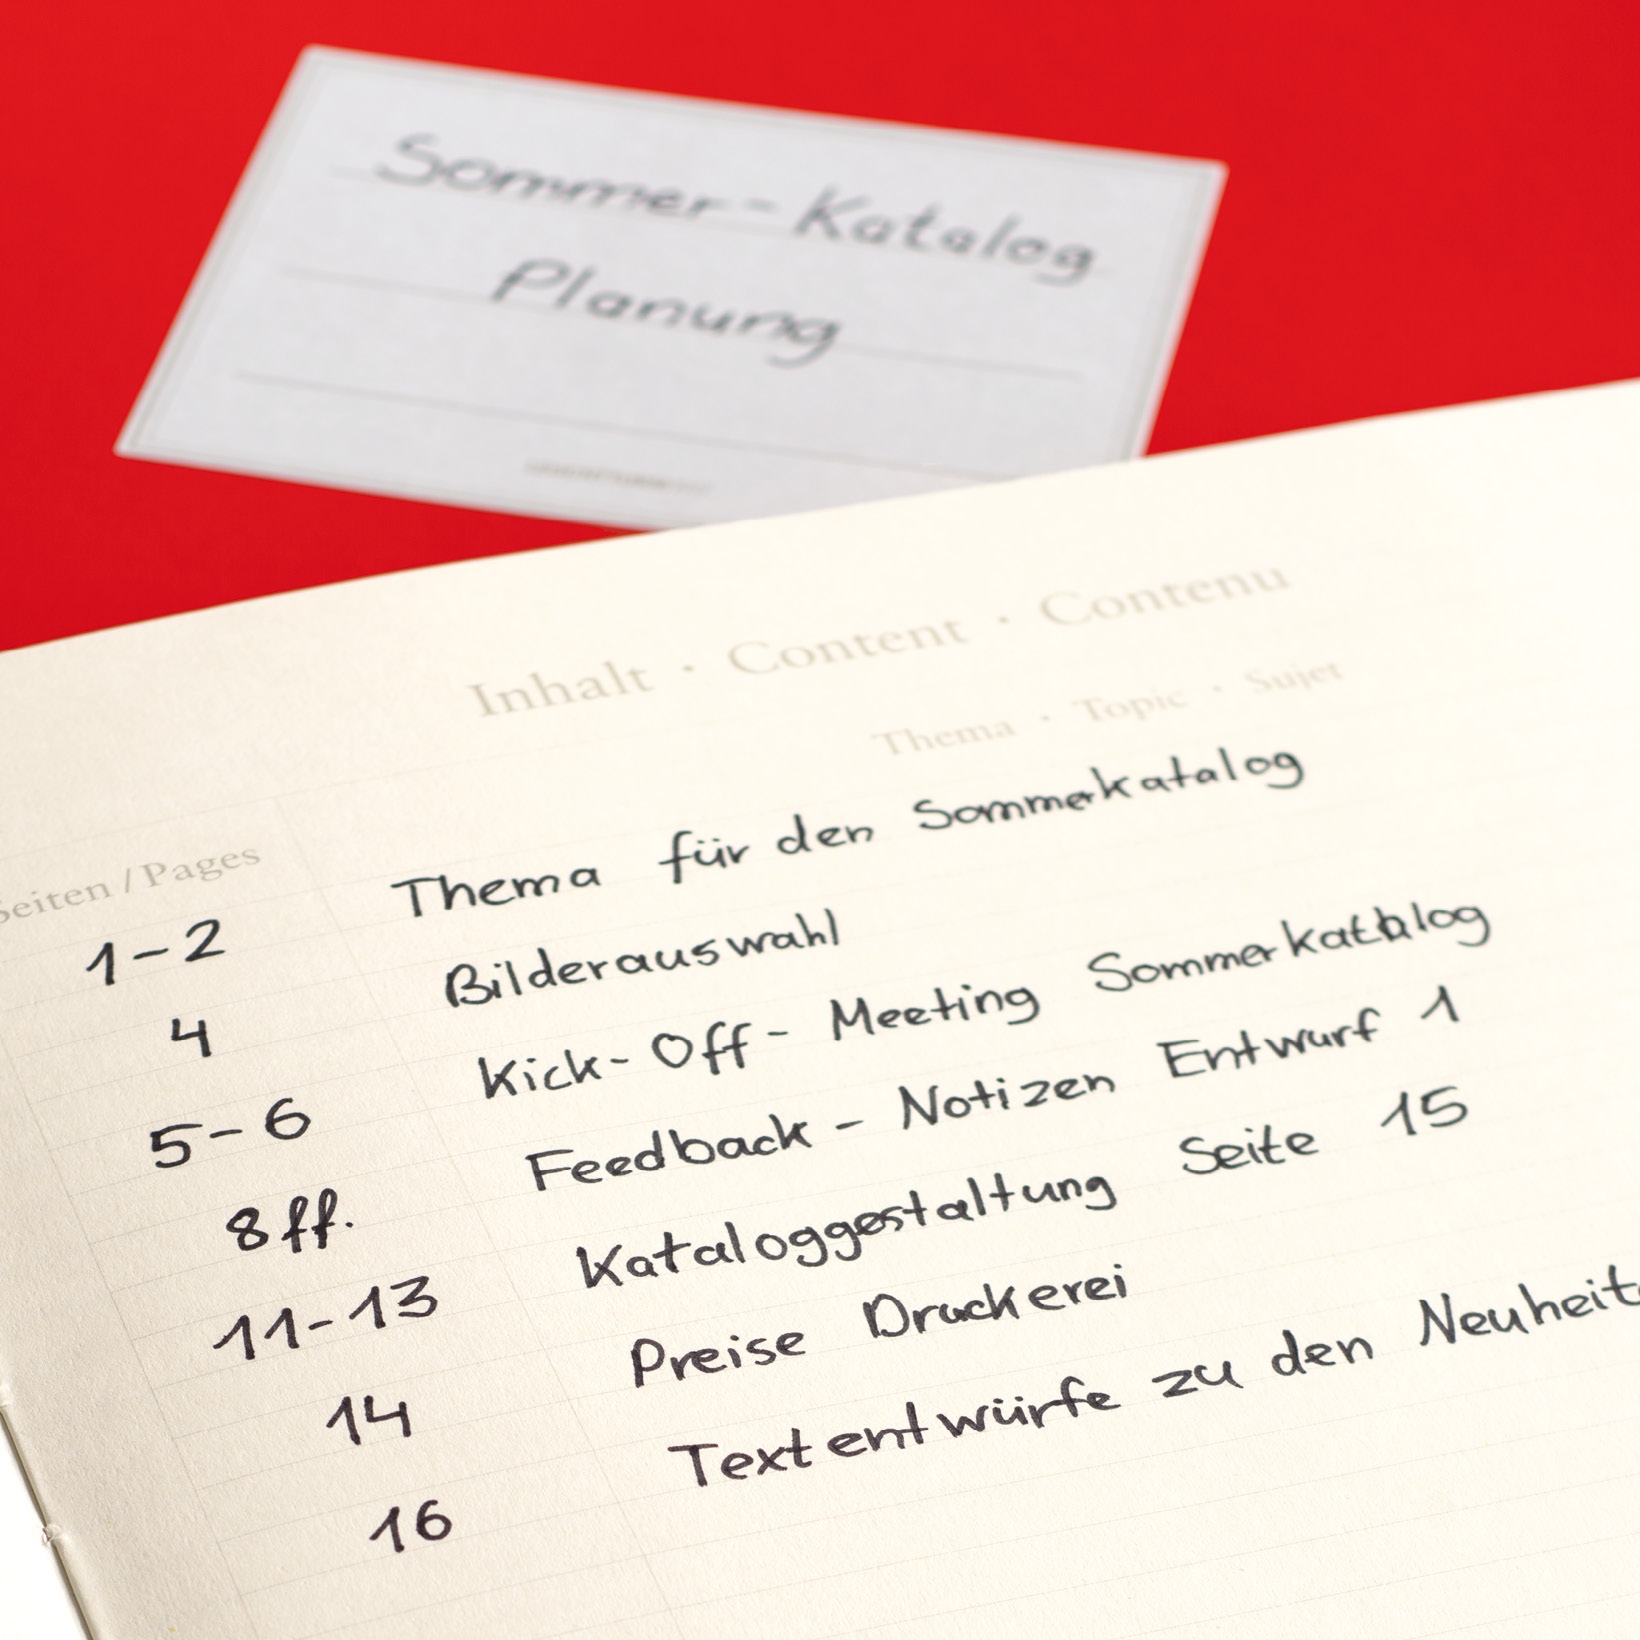 Sommer-Katalog
Planung
Inhalt · Content · Contenu
Seiten / Pages
Thema · Topic · Sujet
1-2 Thema für den Sommerkatalog
4 Bilderauswahl
5-6 Kick-Off-Meeting Sommerkatalog
8ff. Feedback - Notizen Entwurf 1
11-13 Kataloggestaltung Seite 15
14 Preise Druckerei
16 Textentwürfe zu den Neuheit